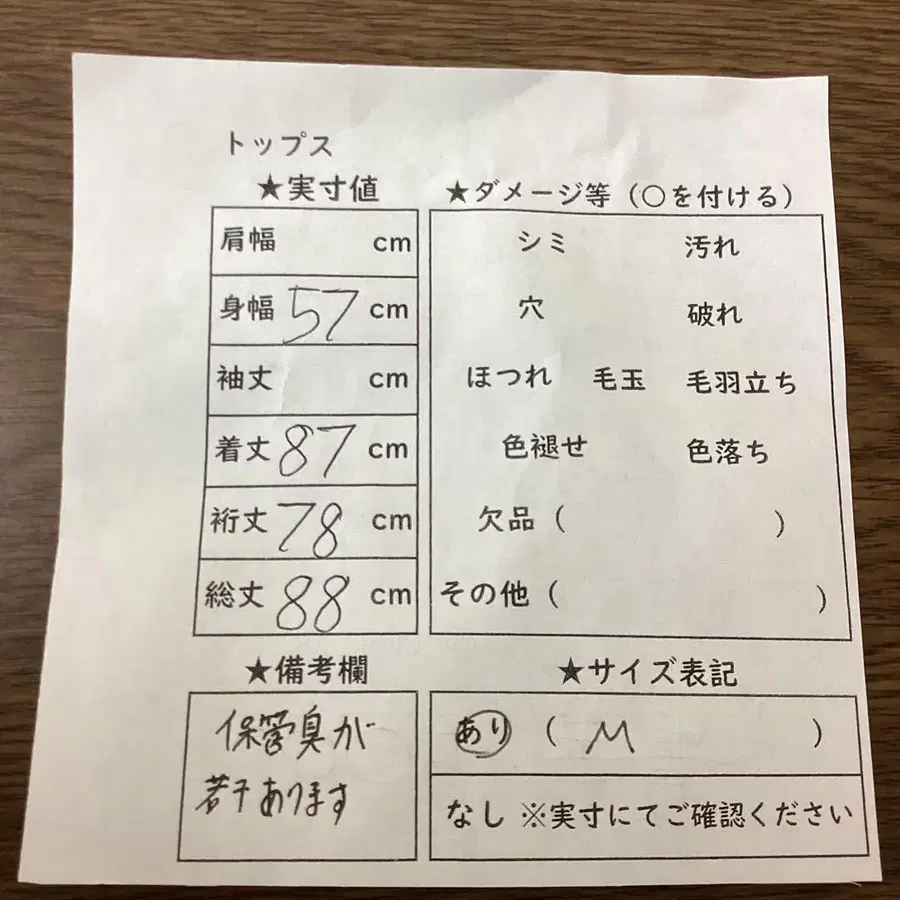 トップス
★実寸値
肩幅 cm
身幅 57 cm
袖丈 cm
着丈 87 cm
裄丈 78 cm
総丈 88 cm
★ダメージ等（○を付ける）
シミ 汚れ
穴 破れ
ほつれ 毛玉 毛羽立ち
色褪せ 色落ち
欠品（ ）
その他（ ）
★備考欄
保管臭が
若干あります
★サイズ表記
あり （ M ）
なし ※実寸にてご確認ください